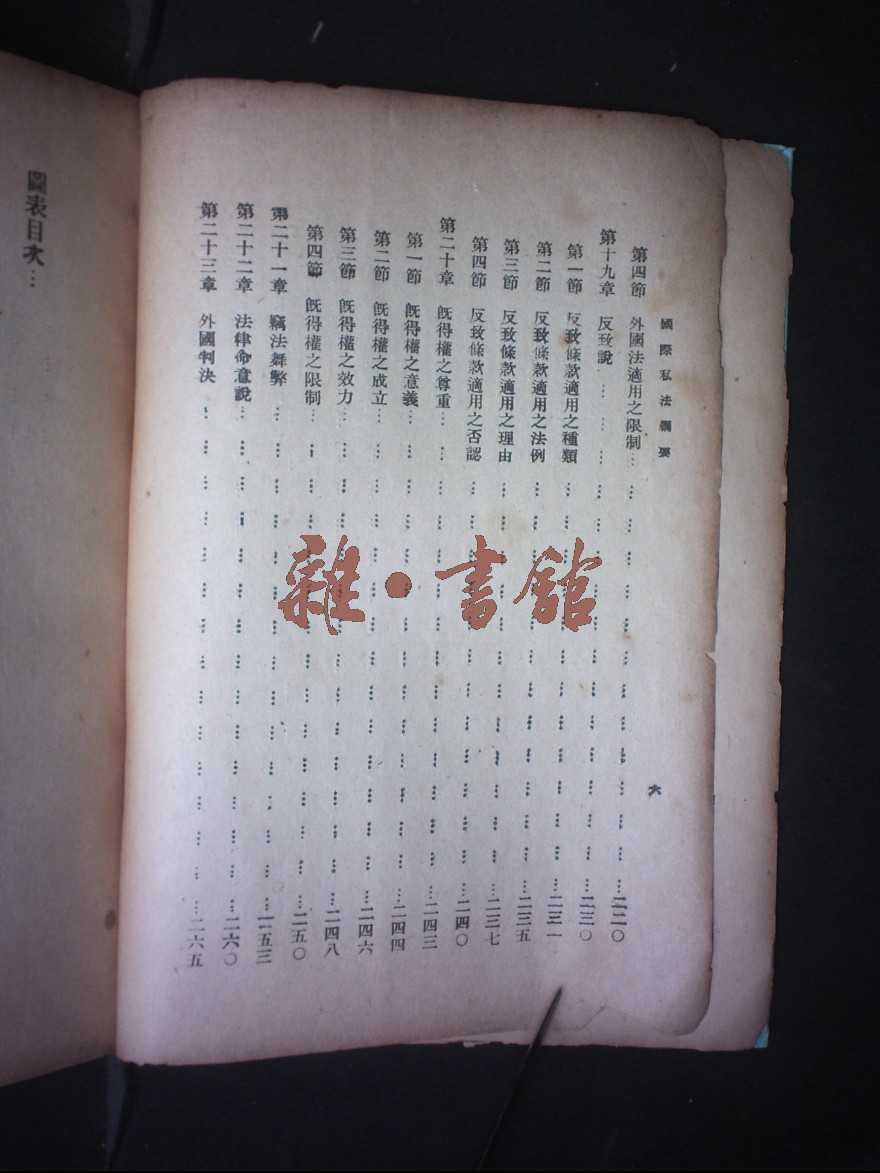 國際私法綱要
六
第四節 外國法適用之限制…二二〇
第十九章 反致說…二三〇
第一節 反致條款適用之種類…二三一
第二節 反致條款適用之法例…二三五
第三節 反致條款適用之理由…二三七
第四節 反致條款適用之否認…二四〇
第二十章 既得權之尊重…二四三
第一節 既得權之意義…二四四
第二節 既得權之成立…二四六
第三節 既得權之效力…二四八
第四節 既得權之限制…二五〇
第二十一章 竊法舞弊…二五三
第二十二章 法律命意說…二六〇
第二十三章 外國判決…二六五
圖表目次…
雜·書館